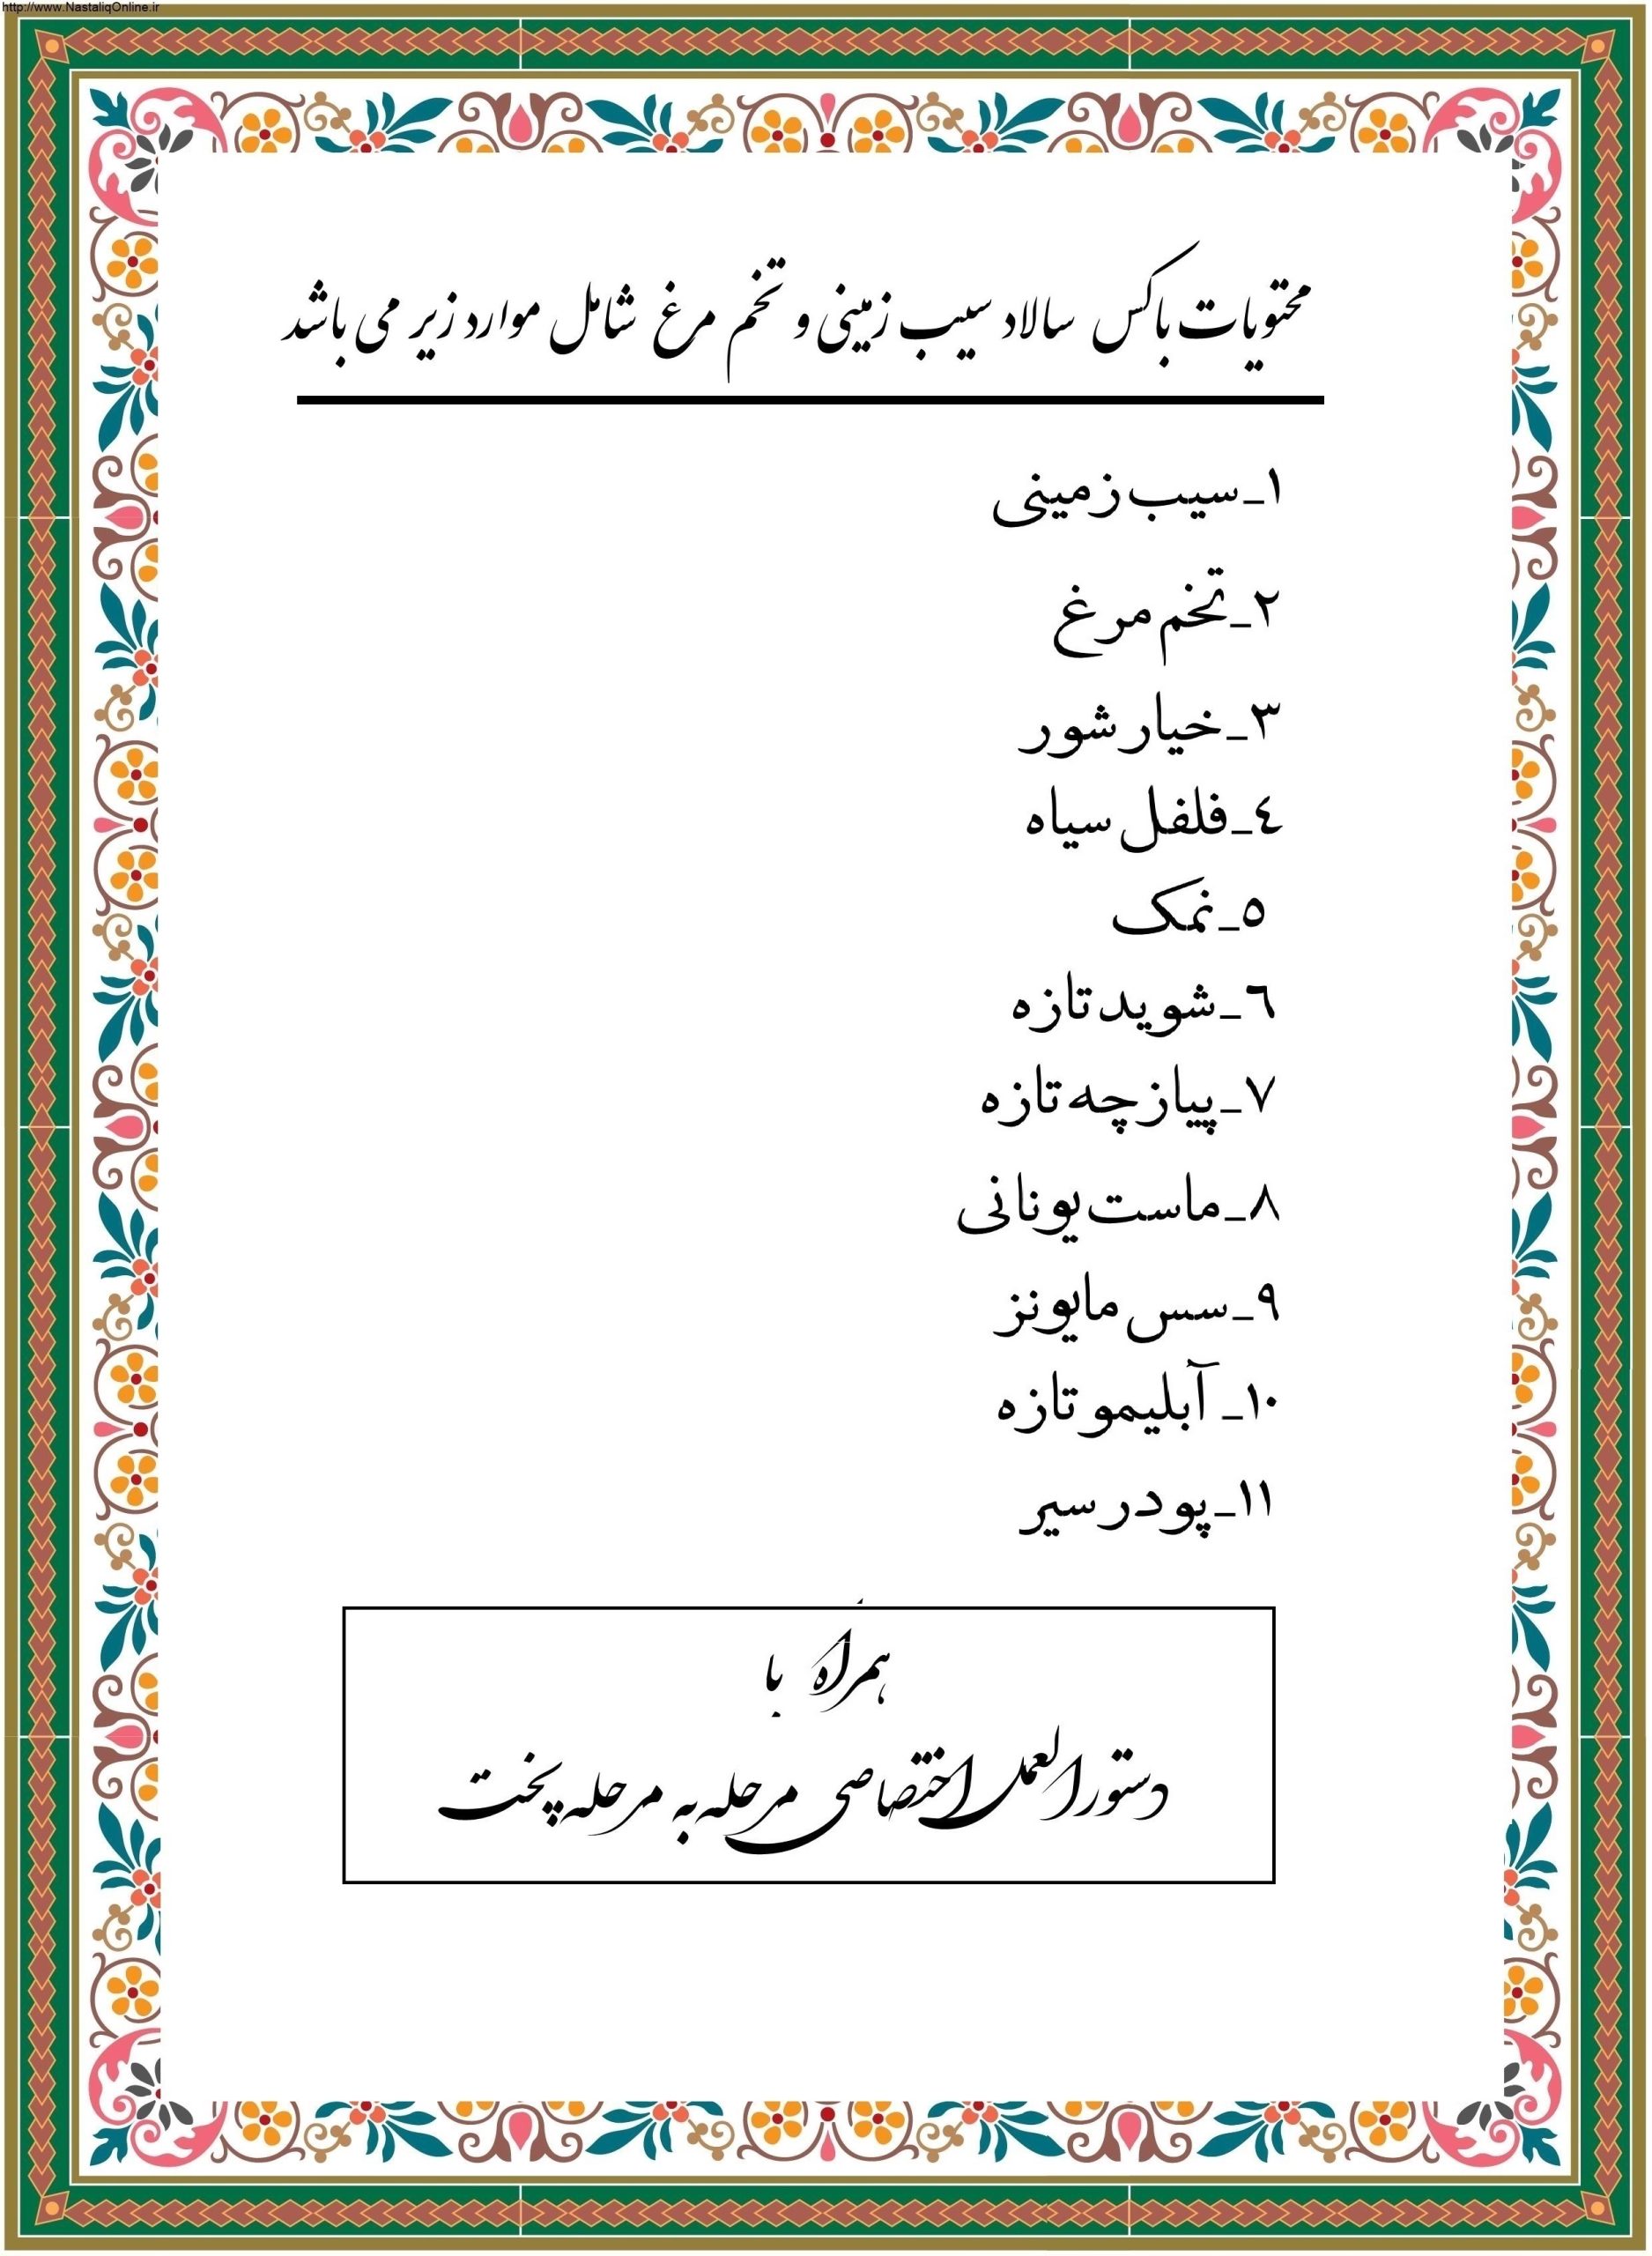 http://www.NastaliqOnline.ir
محتویات باکس سالاد سیب زمینی و تخم مرغ شامل موارد زیر می باشد
۱_سیب زمینی
۲_تخم مرغ
۳_خیار شور
٤_فلفل سیاه
٥_نمک
٦_شوید تازه
۷_پیازچه تازه
۸_ماست یونانی
۹_سس مایونز
۱۰_آبلیمو تازه
۱۱_پودر سیر
همراه با
دستورالعمل اختصاصی مرحله به مرحله پخت